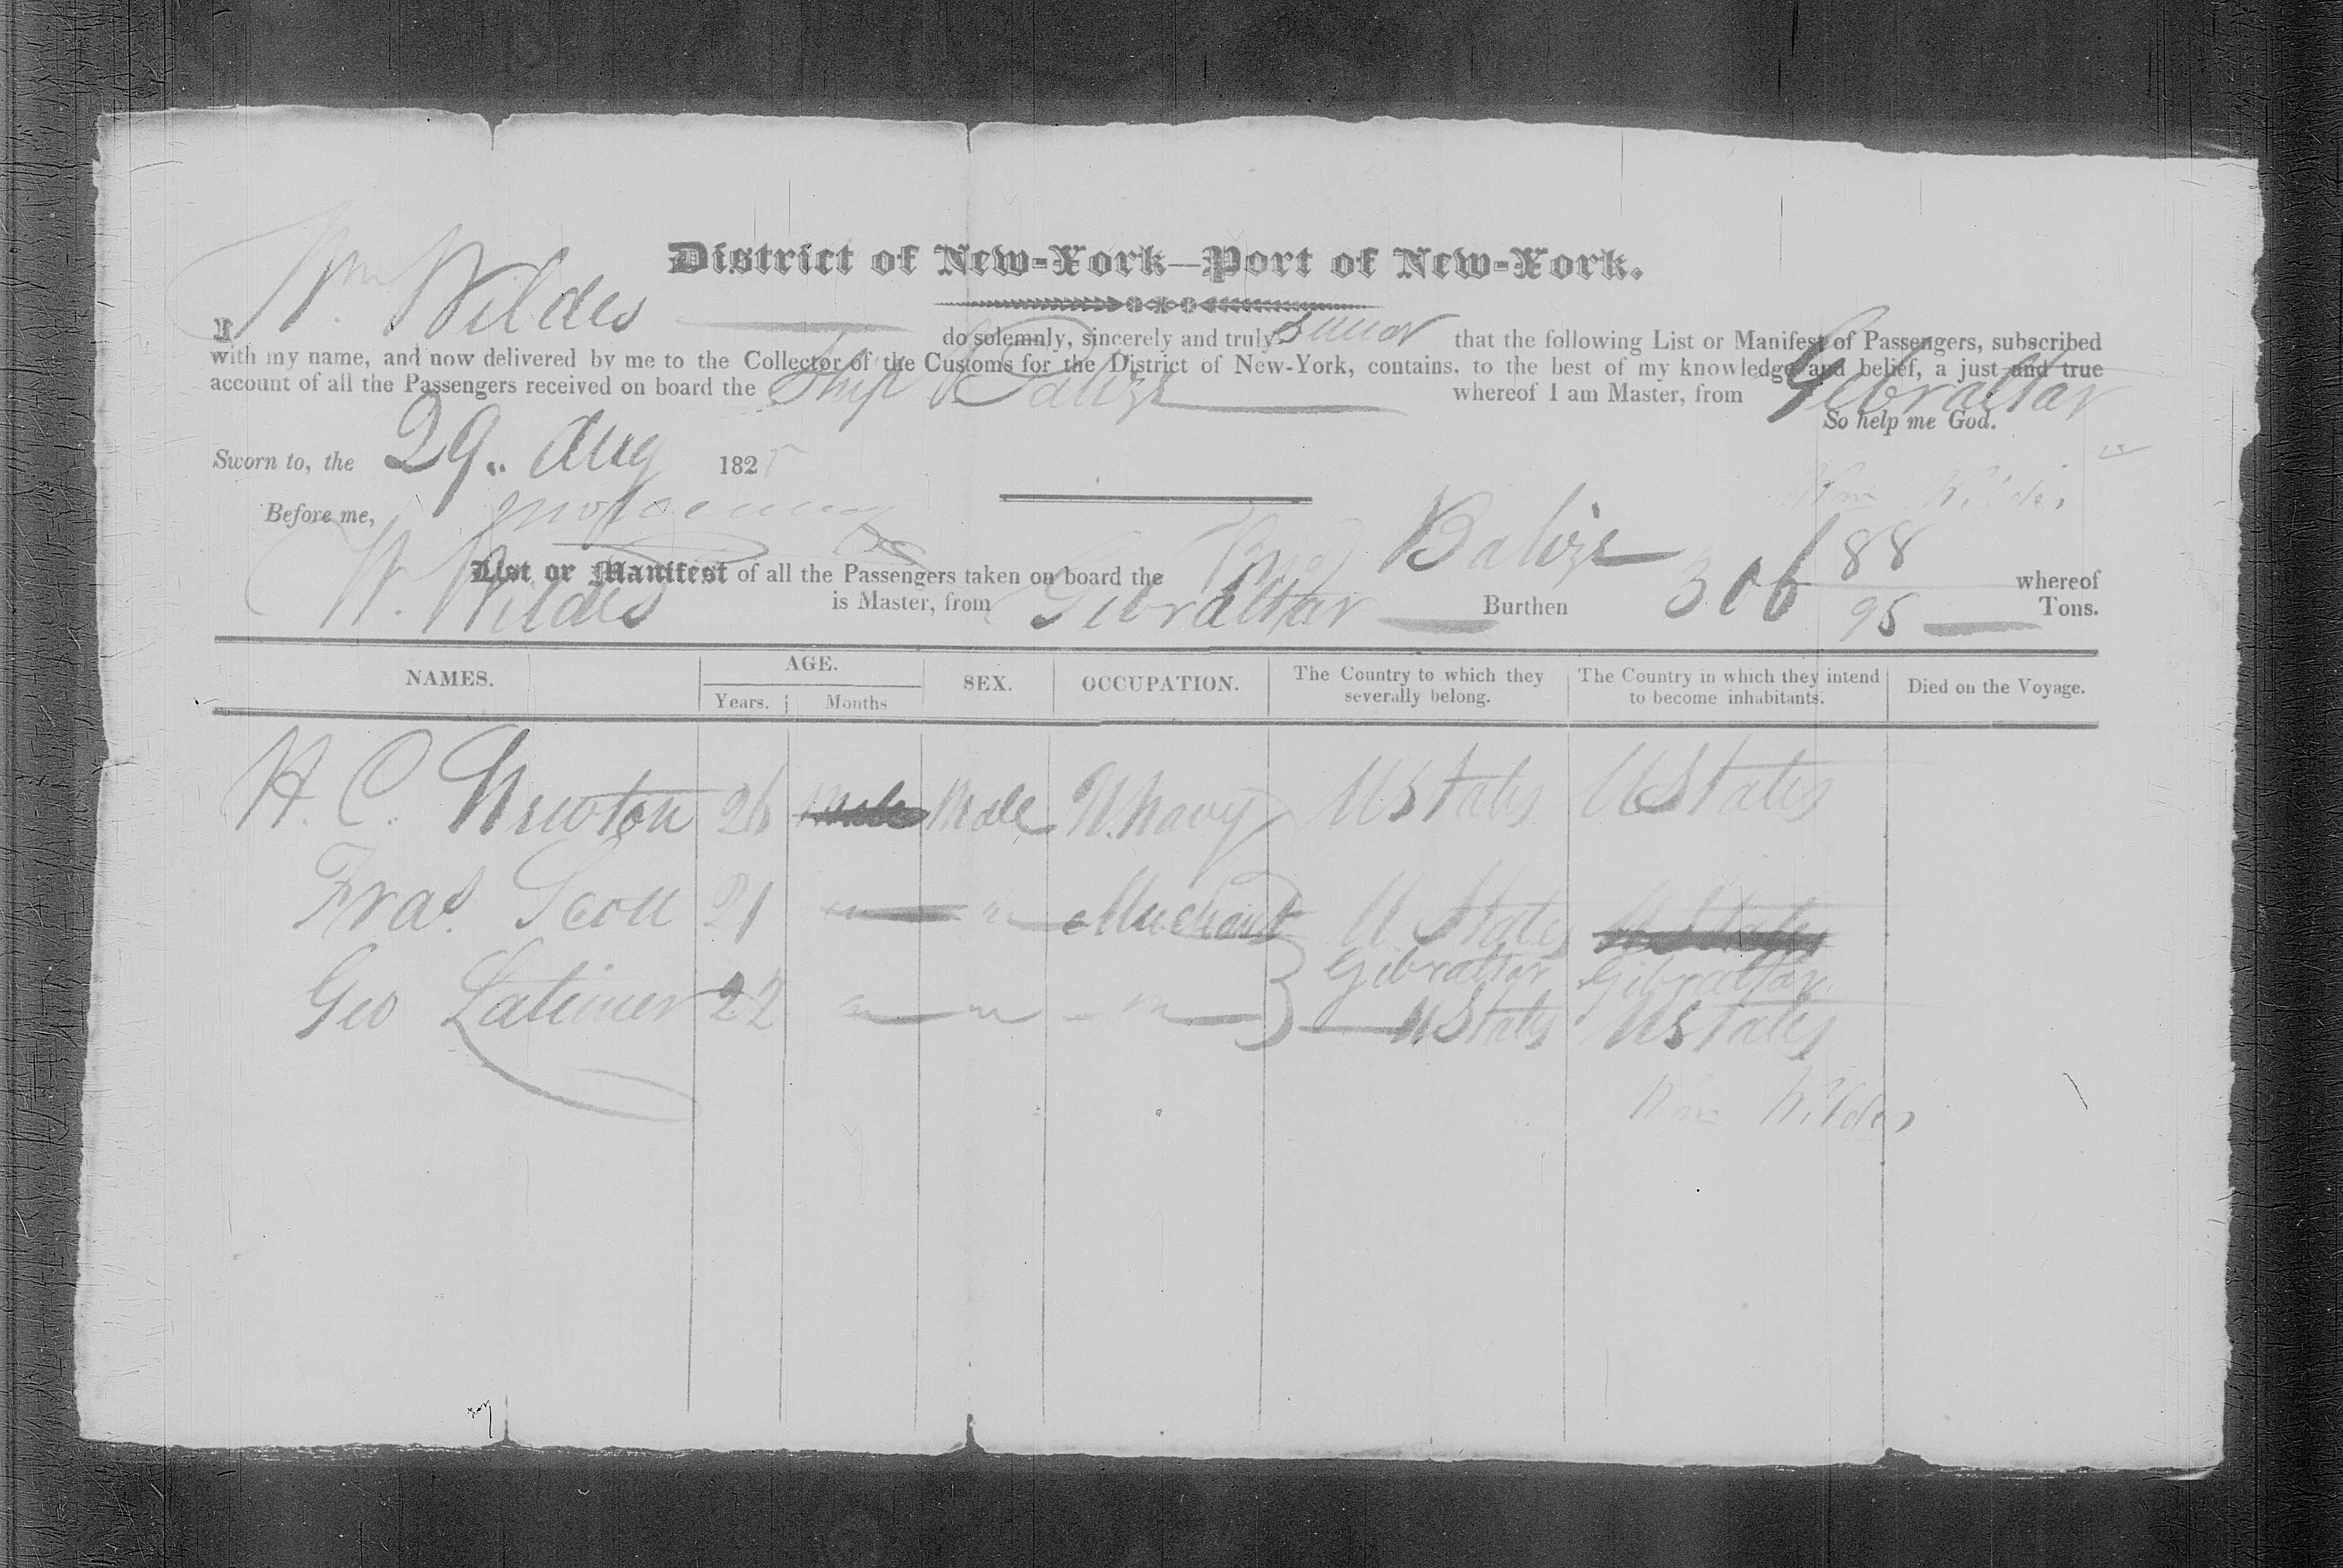 District of New-York—Port of New-York.
I Wm Wildes do solemnly, sincerely and truly swear that the following List or Manifest of Passengers, subscribed
with my name, and now delivered by me to the Collector of the Customs for the District of New-York, contains, to the best of my knowledge and belief, a just and true
account of all the Passengers received on board the Ship Balize whereof I am Master, from Gibraltar
So help me God.
Sworn to, the 29. Aug 1825
Before me,
Wm Wildes
List or Manifest of all the Passengers taken on board the Balize whereof
W. Wildes is Master, from Gibraltar Burthen 306 88/95 Tons.
NAMES. AGE. Years. Months SEX. OCCUPATION. The Country to which they severally belong. The Country in which they intend to become inhabitants. Died on the Voyage.
H. C. Newton 26 Male Male Navy UStates UStates
Fras. Scott 21 " Merchant U States U States
Gibraltar Gibraltar
Geo Latimer 22 " " " UStates UStates
Wm Wildes